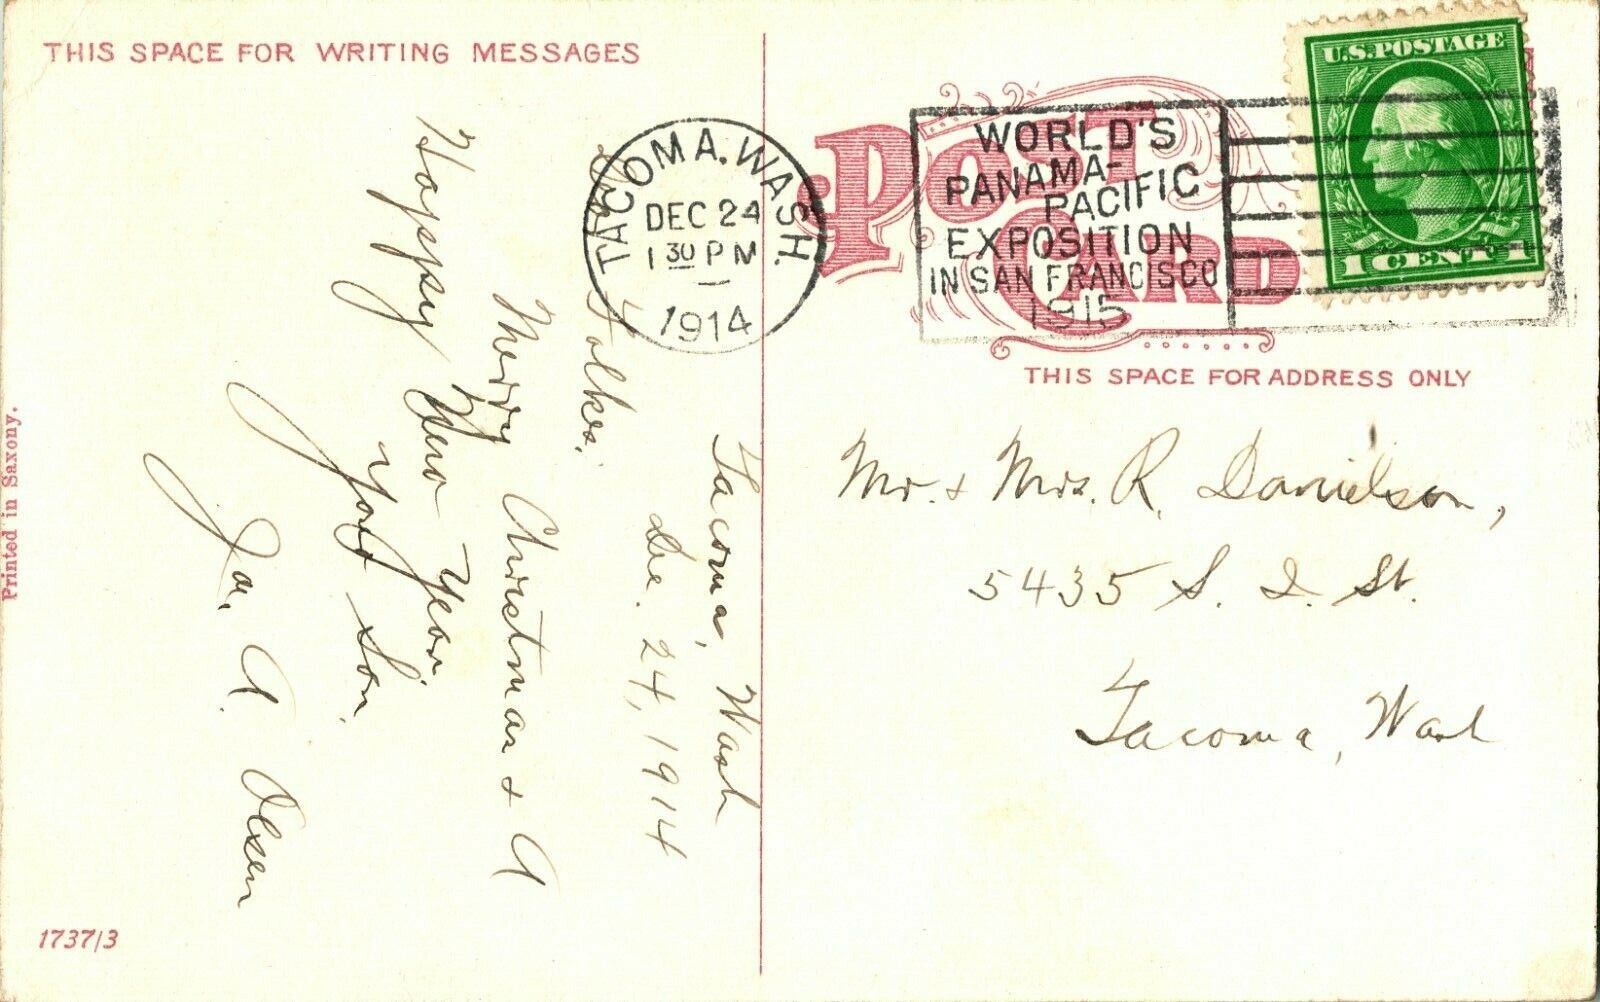 THIS SPACE FOR WRITING MESSAGES
Tacoma, Wash
Dec. 24, 1914
Folkes.
Merry Christmas & A
Happy New Year.
Your Son.
Jas. A. Olsen
Printed in Saxony.
1737/3
TACOMA. WASH.
DEC 24
1 30 PM
1914
POST CARD
WORLD'S
PANAMA-
PACIFIC
EXPOSITION
IN SAN FRANCISCO
1915
U.S. POSTAGE
1 CENT 1
THIS SPACE FOR ADDRESS ONLY
Mr. & Mrs. R. Danielson,
5435 S. I. St.
Tacoma, Wash